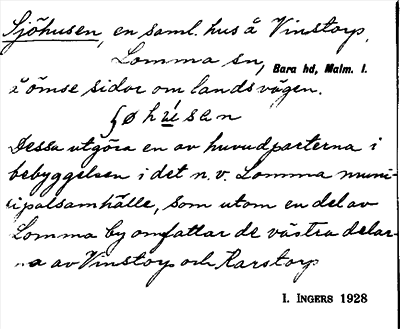 Sjöhusen, en saml. hus å Vinstorp,
Lomma sn, Bara hd, Malm. l.
å ömse sidor om landsvägen.
ʃø hú sen
Dessa utgöra en av huvudparterna i
bebyggelsen i det n. v. Lomma muni-
cipalsamhälle, som utom en del av
Lomma by omfattar de västra delar-
na av Vinstorp och Karstorp
I. INGERS 1928